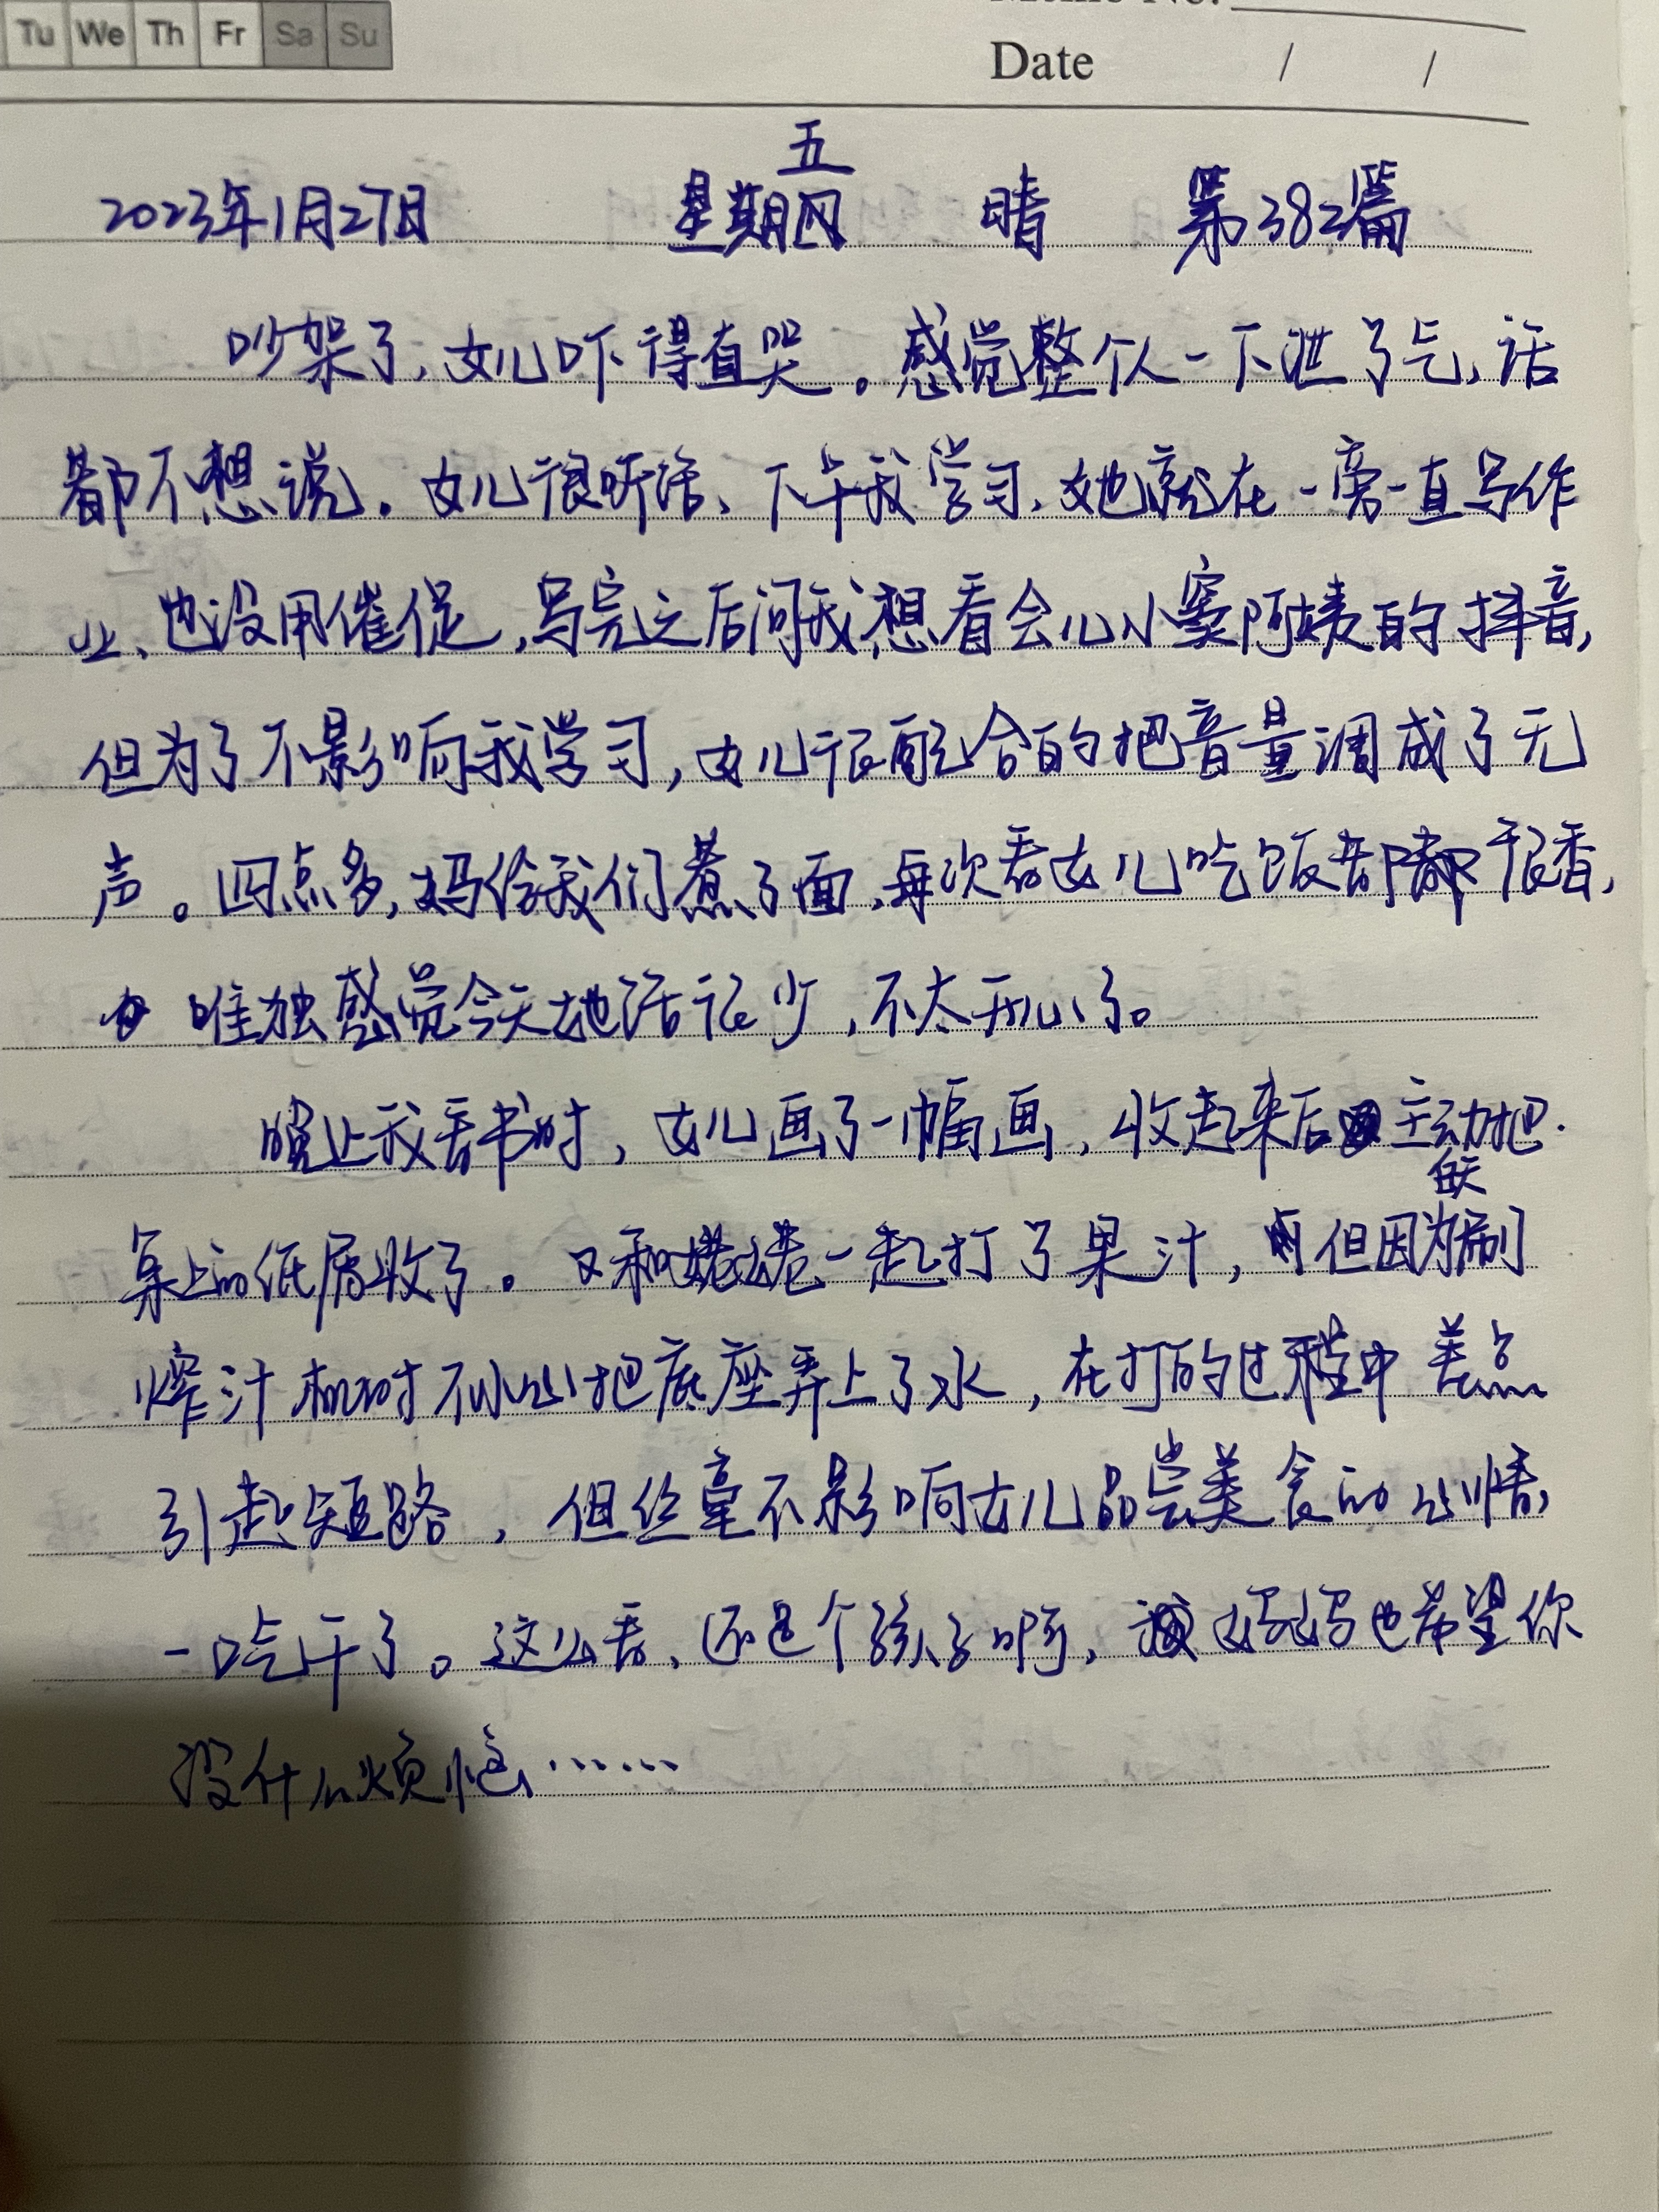 Tu We Th Fr Sa Su
Date / /
五
2023年1月27日 星期四 晴 第382篇
吵架了,女儿吓得直哭。感觉整个人一下泄了气,话
都不想说。女儿很听话、下午我学习,她就在一旁一直写作
业、也没用催促,写完之后问我想看会儿小窦阿姨的抖音,
但为了不影响我学习,女儿很配合的把音量调成了无
声。四点多,妈给我们煮了面,每次看女儿吃饭都很香,
唯独感觉今天她话很少,不太开心了。
晚上我看书时,女儿画了一幅画,收起来后主动把
桌上的纸屑收了。又和一起打了果汁,但因为刷
榨汁机时不小心把底座弄上了水,在打的过程中差点
引起短路,但丝毫不影响女儿品尝美食的心情,
一吃干了。这么看,还是个孩子啊,妈妈也希望你
没什么烦恼……